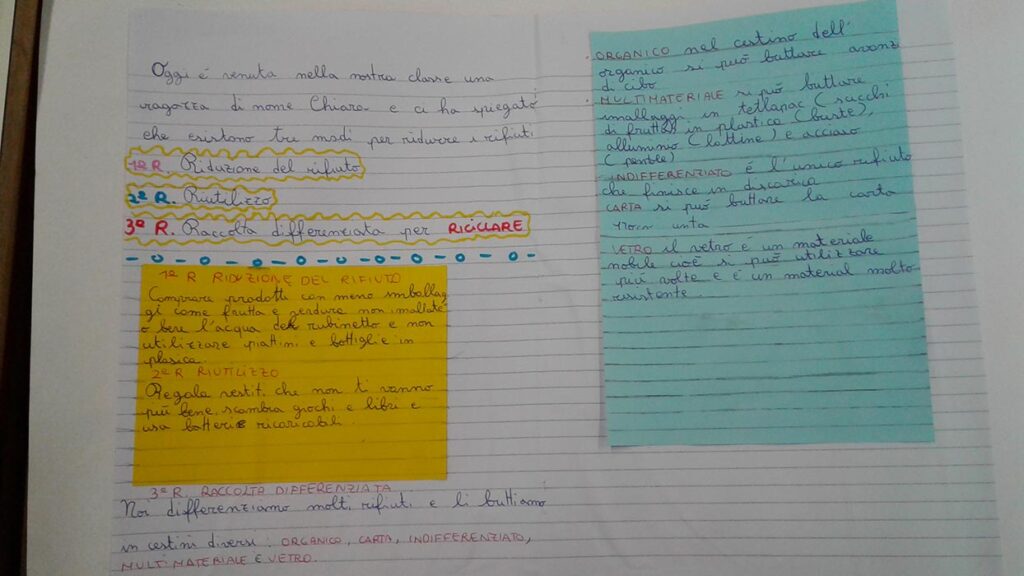 Oggi é venuta nella nostra classe una
ragazza di nome Chiara e ci ha spiegato
che esistono tre modi per ridurre i rifiuti
1ª R. Riduzione del rifiuto
2ª R. Riutilizzo
3ª R. Raccolta differenziata per RICICLARE
1ª R RIDUZIONE DEL RIFIUTO
Comprare prodotti con meno imballag
gi come frutta e verdura non imballate
o bere l'acqua del rubinetto e non
utilizzare piattini e bottiglie in
plasica.
2ª R RIUTILIZZO
Regala vestiti che non ti vanno
più bene, scambia giochi e libri e
usa batterie ricaricabili.
3ª R. RACCOLTA DIFFERENZIATA
Noi differenziamo molti rifiuti e li buttiamo
in cestini diversi: ORGANICO, CARTA, INDIFFERENZIATO,
MULTIMATERIALE E VETRO.
ORGANICO nel cestino dell'
organico si può buttare avanzi
di cibo
MULTIMATERIALE si può buttare
imallaggi in tetlapac (succhi
di frutta) in plastica (buste),
alluminio (lattine) e acciaio
(pentole)
INDIFFERENZIATO é l'unico rifiuto
che finisce in discarica
CARTA si può buttare la carta
non unta
VETRO il vetro é un materiale
nobile cioé si può utilizzare
più volte e é un material molto
resistente.